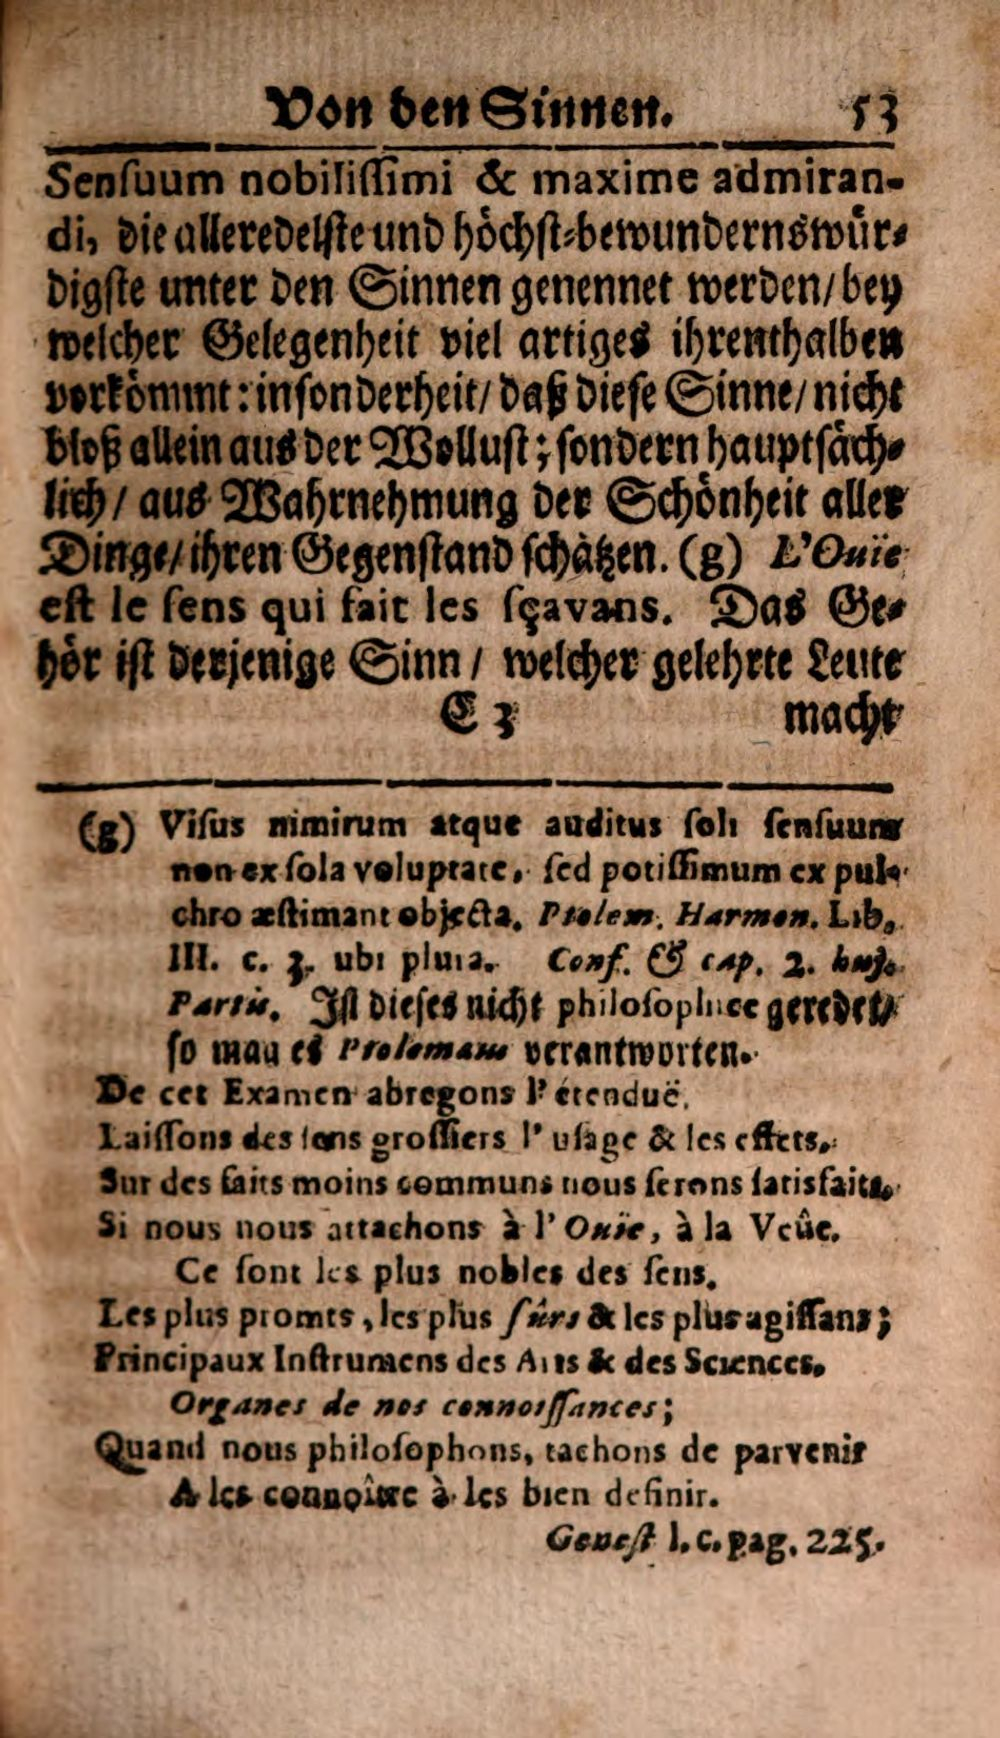 Von den Sinnen. 53
Senſuum nobiliſſimi & maxime admiran-
di, die alleredelſte und höchſt-bewundernswür-
digſte unter den Sinnen genennet werden/ bey
welcher Gelegenheit viel artiges ihrenthalben
vorkömmt: inſonderheit/ daß dieſe Sinne/ nicht
bloß allein aus der Wolluſt; ſondern hauptſäch-
lich/ aus Wahrnehmung der Schönheit aller
Dinge/ ihren Gegenſtand ſchätzen. (g) L'Ouïe
eſt le ſens qui fait les ſçavans. Das Ge-
hör iſt derjenige Sinn/ welcher gelehrte Leute
C 3 macht
(g) Viſus nimirum atque auditus ſoli ſenſuum
non ex ſola voluptate, ſed potiſſimum ex pul-
chro æſtimant objecta. Ptolem. Harmon. Lib.
III. c. 3. ubi plura. Conf. & cap. 2. huj.
Partis. Iſt dieſes nicht philoſophice geredet/
ſo mag es Ptolemæus verantworten.
De cet Examen abregons l' étenduë.
Laiſſons des ſens groſſiers l' uſage & les effets.
Sur des faits moins communs nous ſerons ſatisfaits.
Si nous nous attachons à l' Ouïe, à la Veûe.
Ce ſont les plus nobles des ſens.
Les plus promts, les plus ſûrs & les plus agiſſans;
Principaux Inſtrumens des Arts & des Sciences.
Organes de nos connoiſſances;
Quand nous philoſophons, tachons de parvenir
A les connoître à les bien definir.
Geneſt l. c. pag. 225.